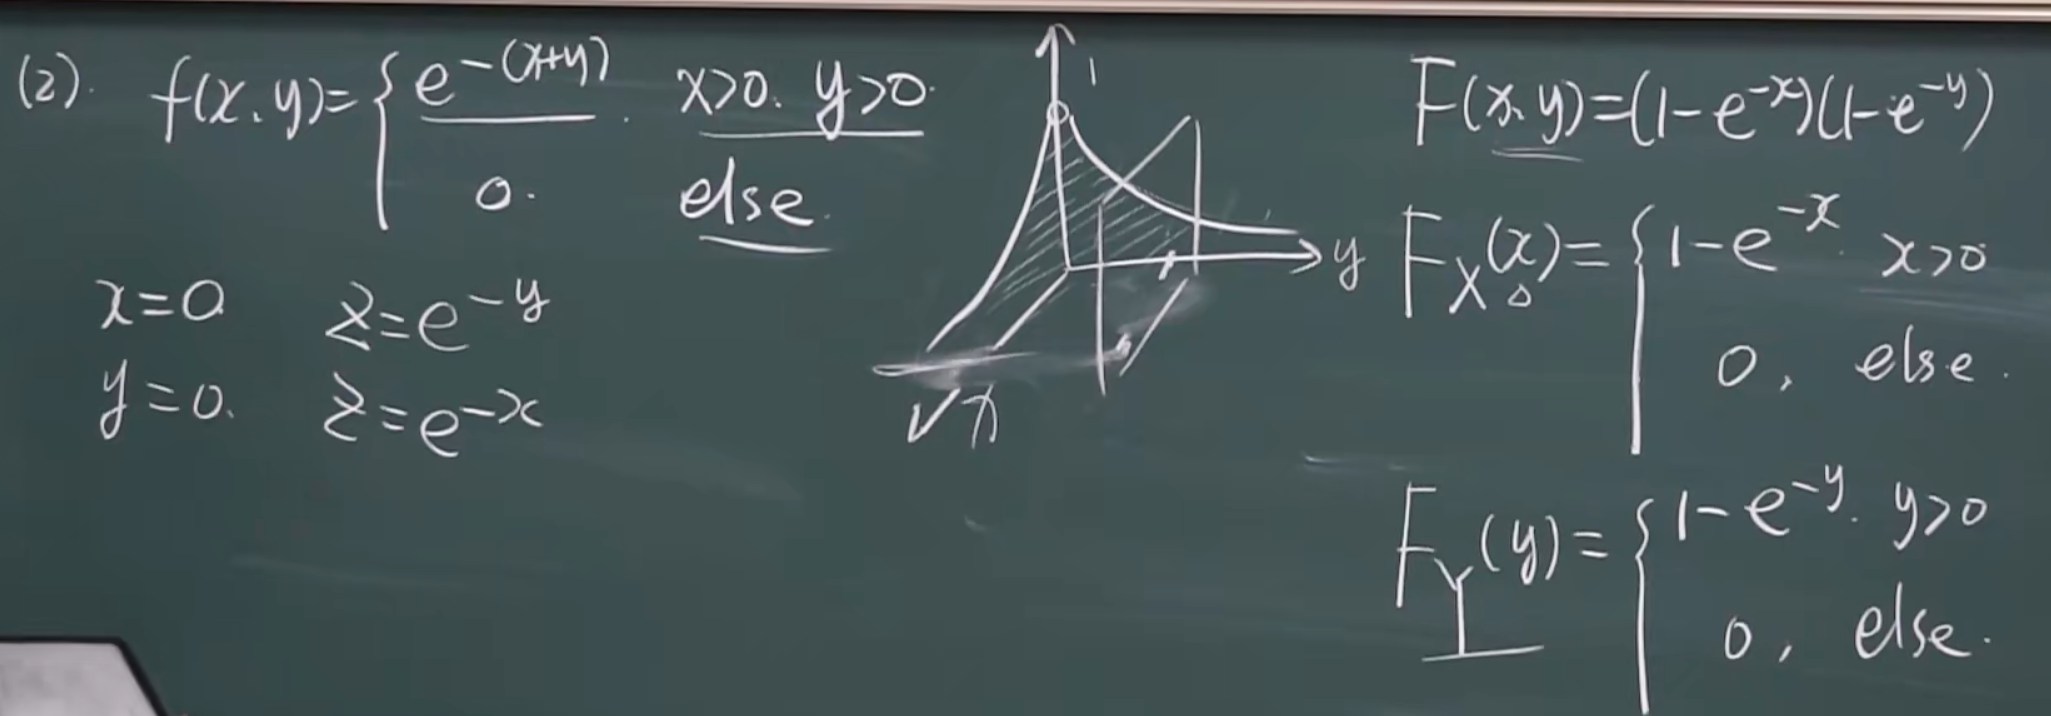 (2). f(x,y)= { e^{-(x+y)}. x>0. y>0.
0. else.
x=0 z=e^{-y}
y=0. z=e^{-x}
1
y
x
F(x,y)=(1-e^{-x})(1-e^{-y})
F_X(x)= { 1-e^{-x}. x>0
0, else.
F_Y(y)= { 1-e^{-y}. y>0
0, else.